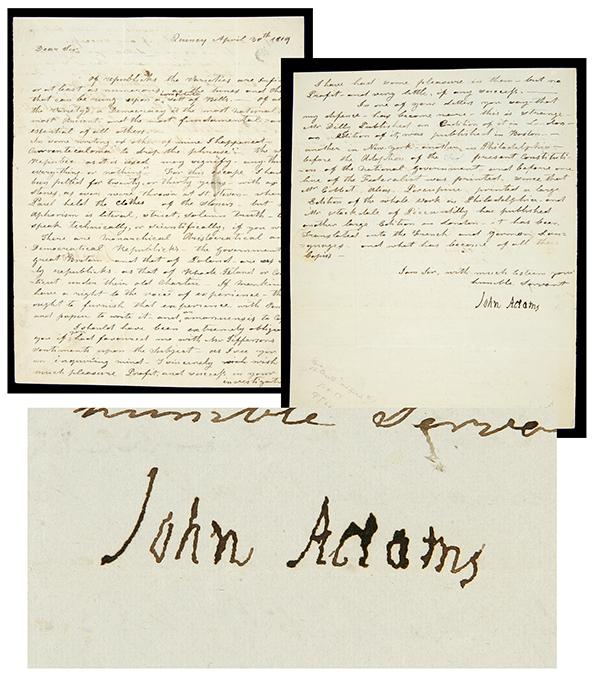 Quincy April 30th 1819
Dear Sir.
Of republicks the Varieties are
or at least as numerous as the tunes and
that can be rung upon a set of Bells. Of
the Variety's, a Democracy is the most natural
most ancient, and the most fundamental and
essential of all others.
In some writing or other of mine I happened
to drop the phrase "The
Republic as it is used may signify any
everything or nothing" For this escape I have
been pelted for twenty, or thirty years with as
Stones as ever thrown at St. Steven when
Paul held the clothes of the Stoners. but
Aphorism is literal, strict, solemn truth. to
speak technically, or scientifically, if you
There are Monarchical Aristocratical
Democratical Republicks. The government
great Britain and that of Poland are as
ly republicks as that of Rhode Island or
ticut under their old Charters. If mankind
have a right to the voice of experience
ought to furnish that experience with
and paper to write it and an amanuensis to
I should have been extremely obliged
you if had favoured me with Mr Jeffersons
sentiments upon the subject. as I see you
an inquiring mind I sincerely wish
much pleasure Profit, and success in your
investigati
I have had some pleasure in them but no
Profit and very little, if any success.
In one of your letters you say that
my defence has become rare. this is strange
Mr Dilly Published an Edition of it in
an Edition of it, was published in Boston.
another New York another in Philadelphia
before the Adoption of the present Constituti
on of the National Government and before one
line of the Federalist was printed, since that
Mr Cobbet, alias, Porcupine printed a large
Edition of the whole work in Philadelphia and
Mr Stockdale of Piccadilly has published
another large Edition in London. it has been
Translated into the French and German Lan
guages. and what has become of all these
Copies
I am Sir, with much Esteem your
humble, Servant
John Adams
humble Serva
John Adams